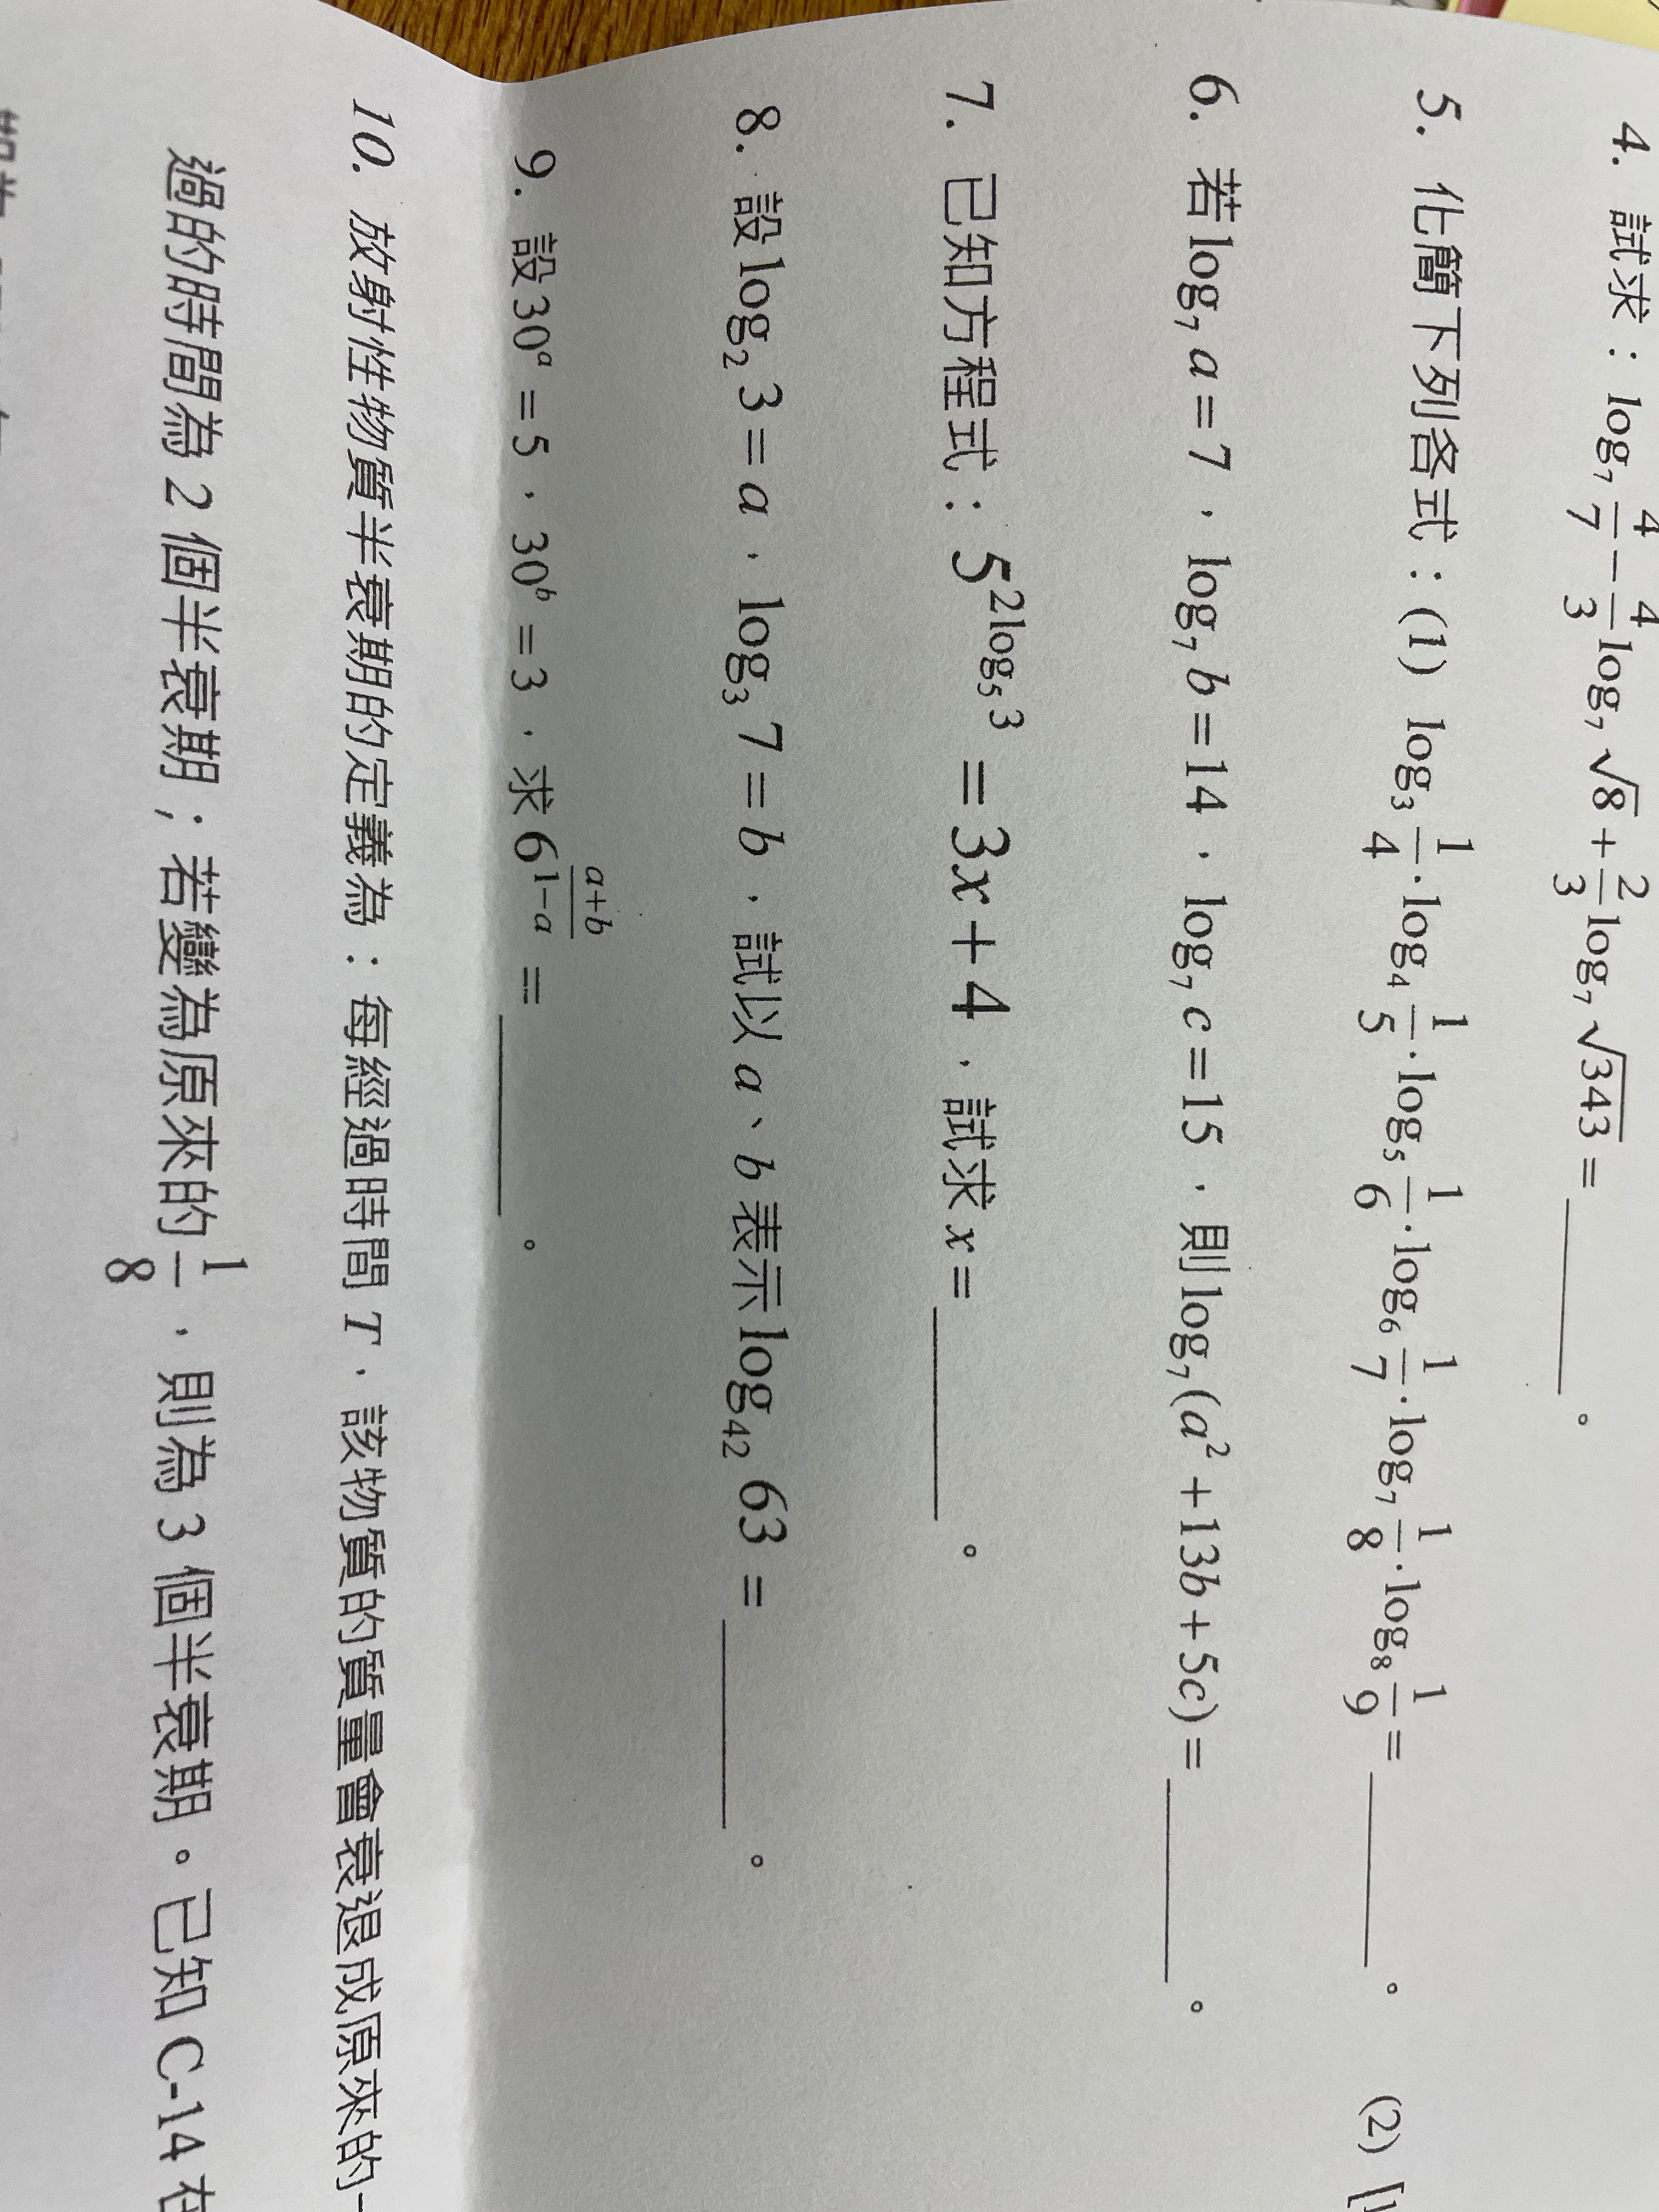 4. 試求：log₇ 4/7 − 4/3 log₇ √8 + 2/3 log₇ √343 = ______ 。
5. 化簡下列各式：(1) log₃ 1/4 · log₄ 1/5 · log₅ 1/6 · log₆ 1/7 · log₇ 1/8 · log₈ 1/9 = ______ 。 (2) [
6. 若 log₇ a = 7，log₇ b = 14，log₇ c = 15，則 log₇(a² + 13b + 5c) = ______ 。
7. 已知方程式：5^(2log₅3) = 3x + 4，試求 x = ______ 。
8. 設 log₂ 3 = a，log₃ 7 = b，試以 a、b 表示 log₄₂ 63 = ______ 。
9. 設 30^a = 5，30^b = 3，求 6^((a+b)/(1−a)) = ______ 。
10. 放射性物質半衰期的定義為：每經過時間 T，該物質的質量會衰退成原來的
過的時間為 2 個半衰期；若變為原來的 1/8，則為 3 個半衰期。已知 C-14 在